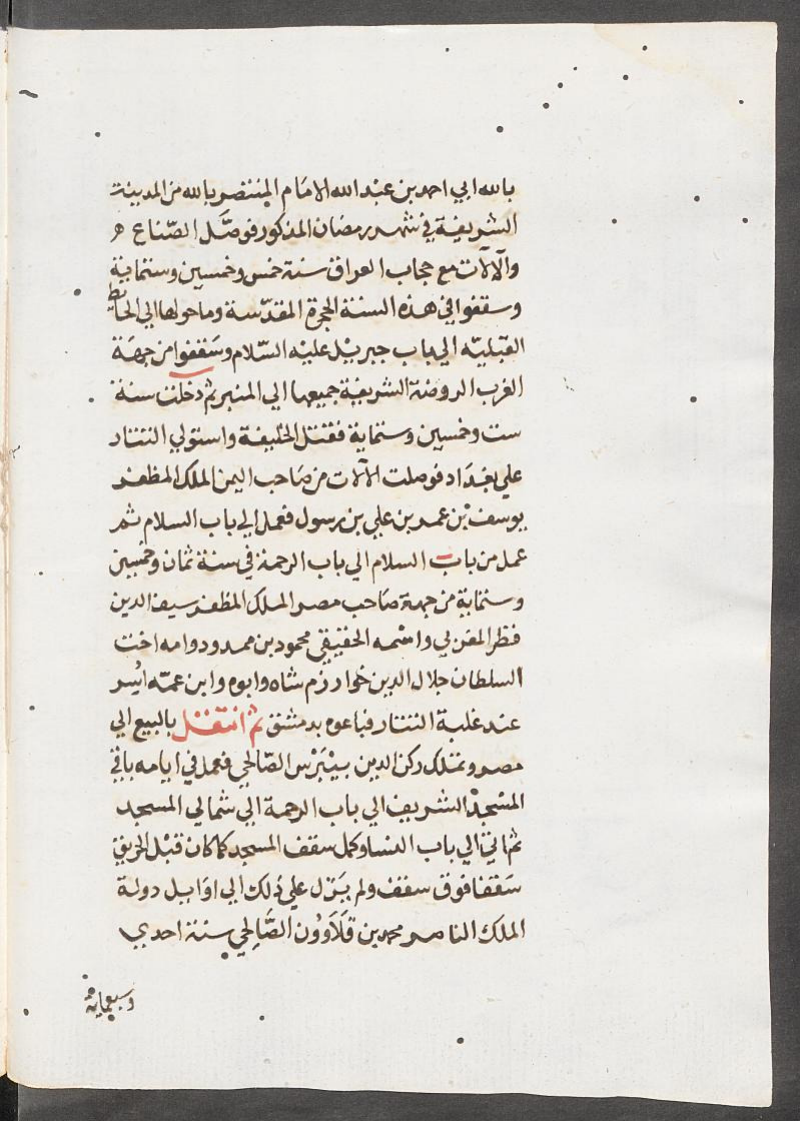 بالله ابي احمد بن عبد الله الامَام المنتصر بالله من المدينة
الشريفة في شهر رمضان المذكور فوصَّل الصّناع
والآلات مع حجاب العراق سنة خمس وخمسين وستماية
وسقفوا في هذه السنة الحجرة المقدّسة وما حولها الي الحائط
القبليّه الي باب جبريْل عليْه السّلام وسَقفوا من جهَة
الغرب الروضة الشريفة جميعها الي المنبر ثم دخلت سنة
ست وخمسين وستماية فقتل الخليفة واستولي التتار
علي بغدَاد فوصلت الآلات من صَاحب اليمن الملك المظفر
يوسف بْن عمر بن علي بن رسول فعمل الي باب السلام ثمر
عمل من باب السلام الي باب الرحمة في سنة ثمان وخمسين
وستماية من جهة صَاحب مصر الملك المظفر سيف الدين
قطز المعزي واسْمه الحقيقي محمود بن ممدود وامه اخت
السلطان جلال الدين خوارزم شاه وابوه وابن عمّه اُسر
عند غلبة التتار فباعوه بدمشق ثم انتقل بالبيع الي
مصر وتملك ركن الدين بيْبَرْس الصّالحي فعمل في ايامه باقي
المسْجدْ الشريف الي باب الرحمة الي شمالي المسجد
ثم اتي الي باب النسا وكمل سقف المسجد كما كان قبْل الحريق
سَقفا فوق سقف ولم يَزل علي ذلك الي اوَايل دولة
الملك الناصر محمد بن قلَاوُون الصَّالِحي سنة احدي
وسبعماية